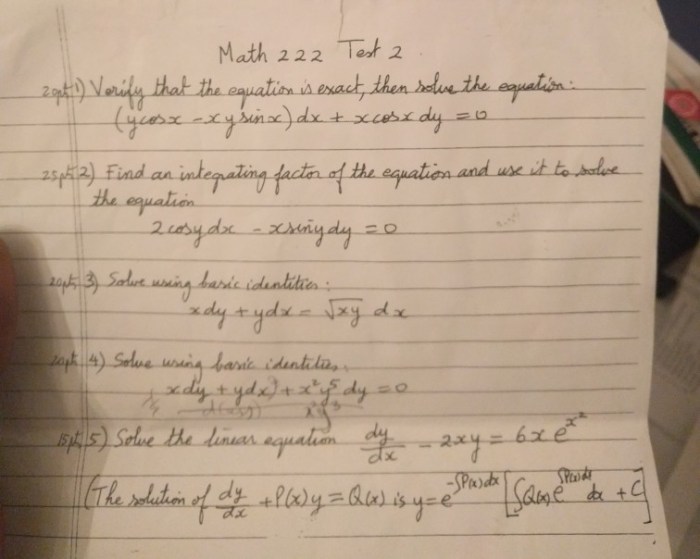 Math 222 Test 2
20pts 1) Verify that the equation is exact, then solve the equation:
(y cos x - x y sin x) dx + x cos x dy = 0
25pts 2) Find an integrating factor of the equation and use it to solve
the equation
2 cos y dx - x sin y dy = 0
20pts 3) Solve using basic identities:
x dy + y dx = √xy dx
20pts 4) Solve using basic identities:
x dy + y dx + x² y⁵ dy = 0
d(xy)
15pts 5) Solve the linear equation dy/dx - 2xy = 6x e^x²
(The solution of dy/dx + P(x) y = Q(x) is y = e^-∫P(x)dx [∫Q(x) e^∫P(x)dx dx + C]